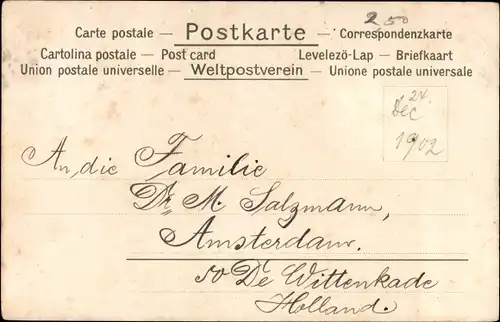 2 50
Carte postale — Postkarte — Correspondenzkarte
Cartolina postale — Post card Levelezö-Lap — Briefkaart
Union postale universelle — Weltpostverein — Unione postale universale
24.
Dec
1902
An die Familie
Dr. M. Salzmann,
Amsterdam.
50 De Wittenkade
Holland.